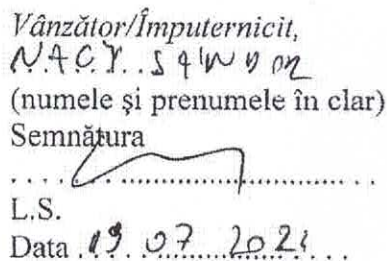 Vânzător/Împuternicit,
NAGY SANDOR
(numele și prenumele în clar)
Semnătura
L.S.
Data 19 07 2021